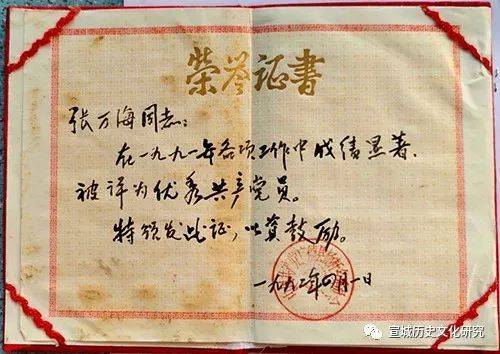 荣誉证书
张万海同志:
在一九九一年各项工作中成绩显著.
被评为优秀共产党员。
特颁发此证,以资鼓励。
一九九二年四月一日
宣城历史文化研究